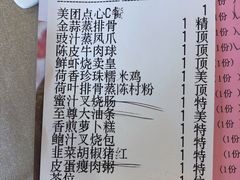 美团点心C餐 1
金蒜蒸排骨 1 精
豉汁蒸凤爪 1 顶
陈皮牛肉球 1 顶
鲜虾烧卖皇 1 顶
荷香珍珠糯米鸡 1
荷叶排骨蒸陈村粉 1
蜜汁叉烧肠 1 特
至尊大油条 1 特
香煎萝卜糕 1 特
鲍汁叉烧包 1 特
韭菜胡椒猪红 1 特
皮蛋瘦肉粥 1 特
茶位